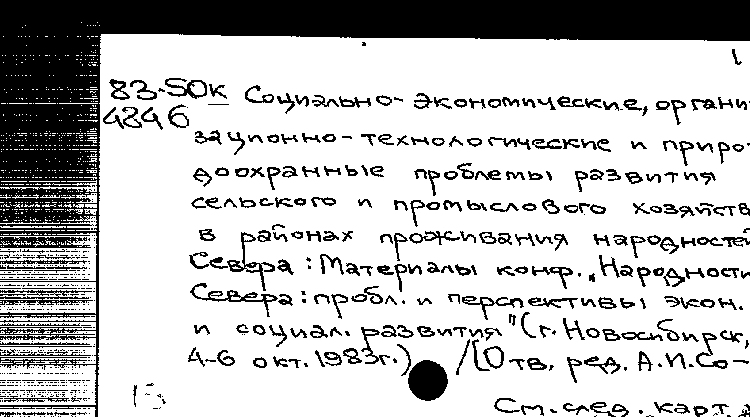 1
83-50к Социально-экономические, органи-
4846
зационно-технологические и приро-
доохранные проблемы развития
сельского и промыслового хозяйств
в районах проживания народностей
Севера: Материалы конф. „Народности
Севера: пробл. и перспективы экон.
и социал. развития" (г. Новосибирск,
4-6 окт. 1983г.) /[Отв. ред. А.И.Со-
См. след. карт.